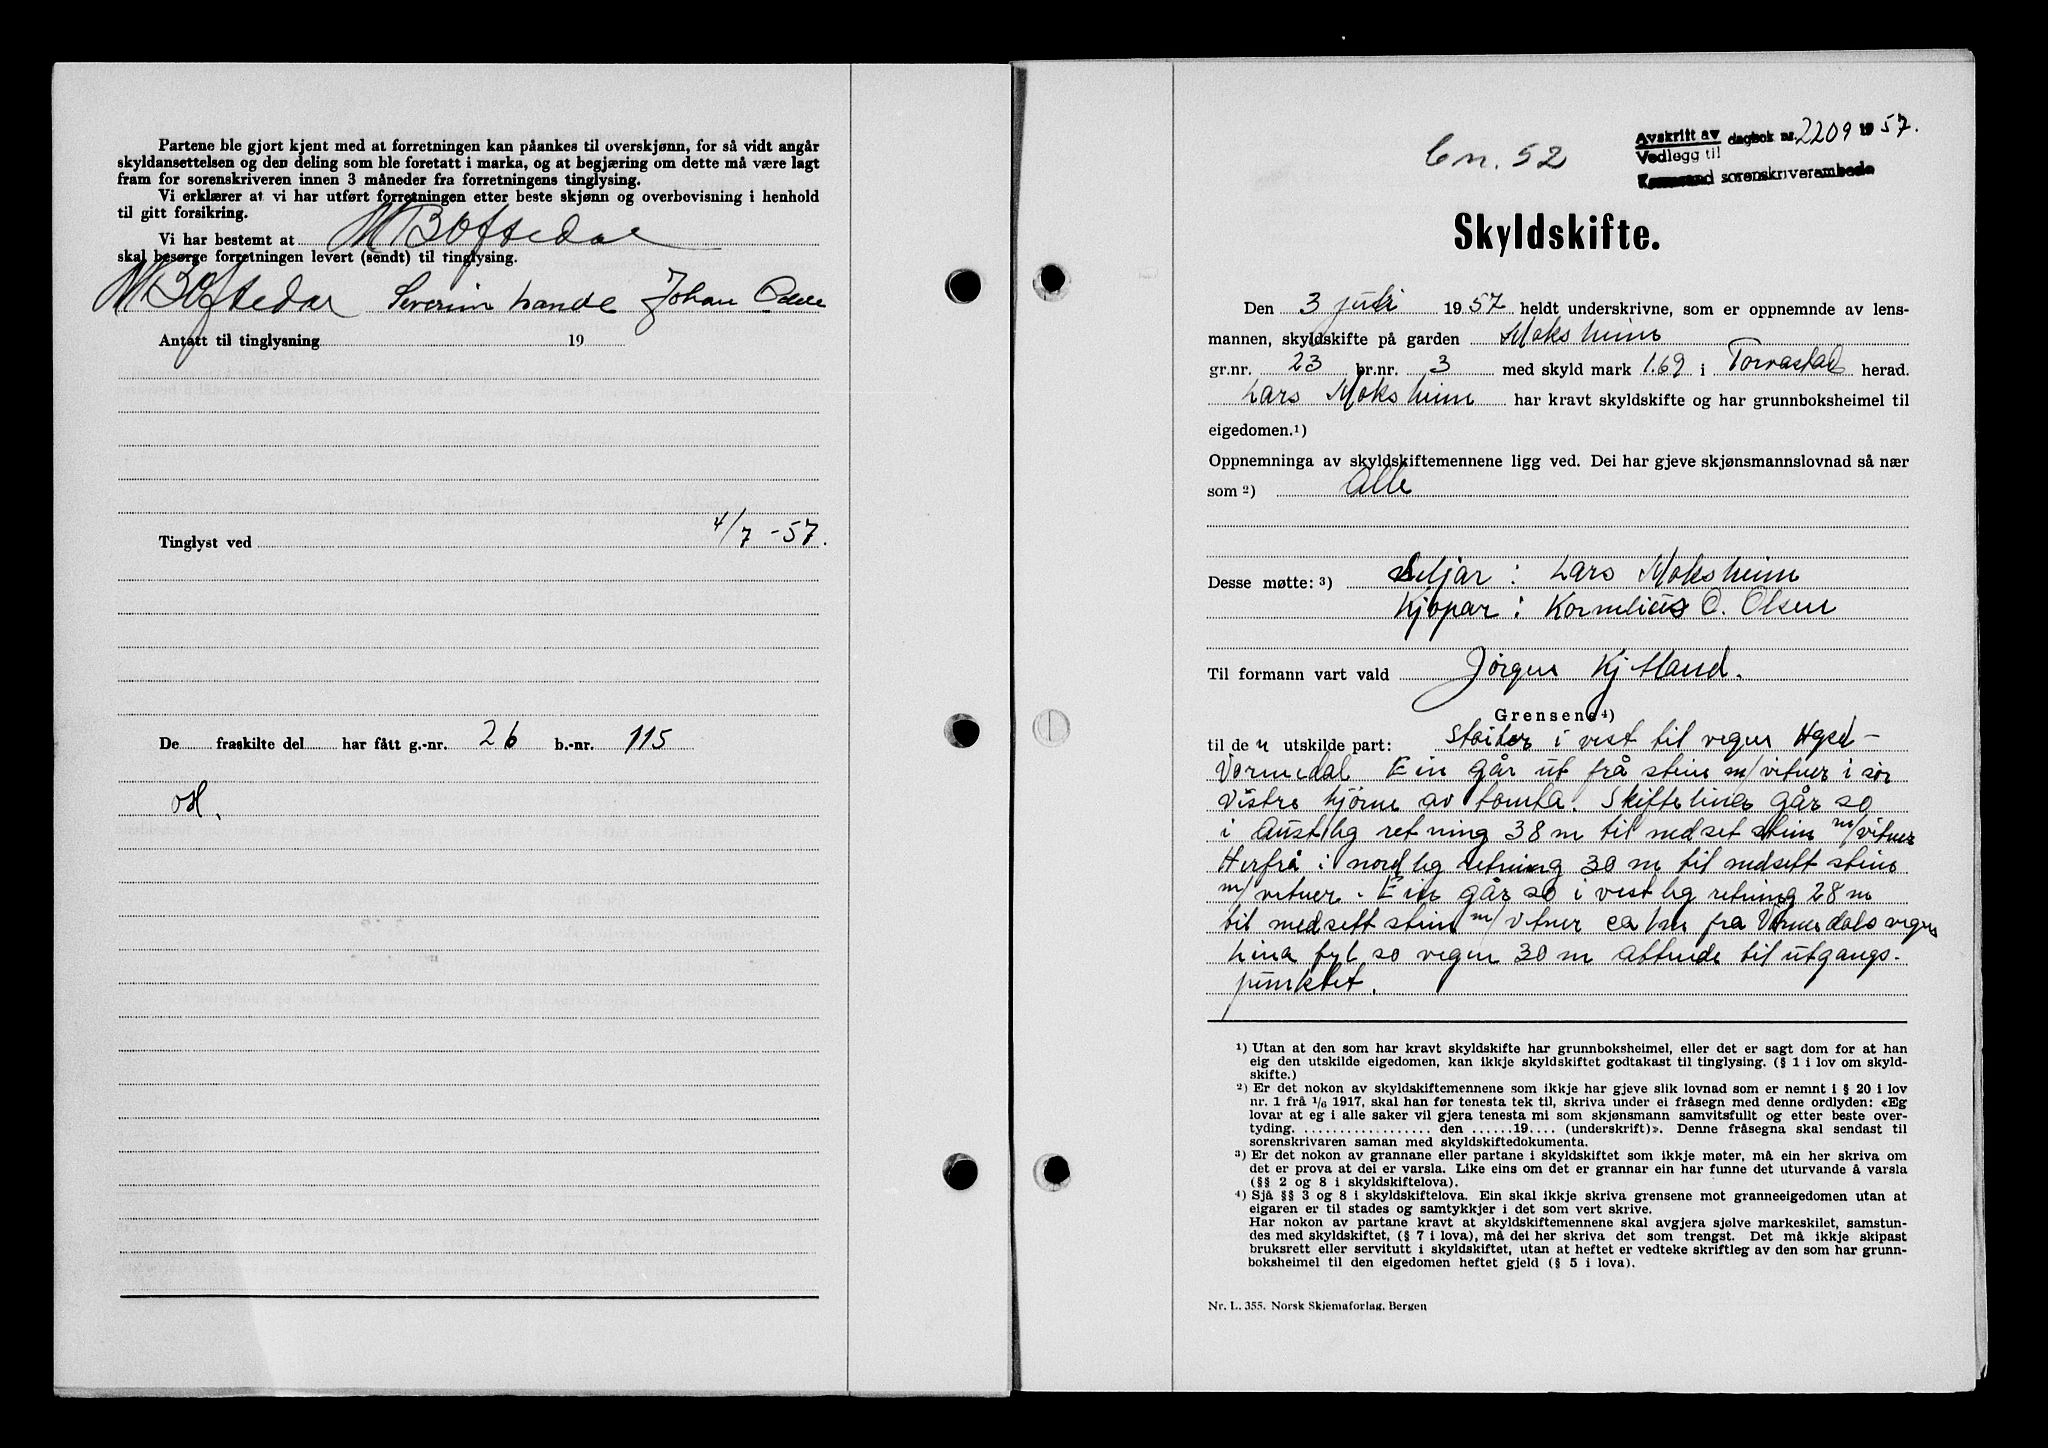 Partene ble gjort kjent med at forretningen kan påankes til overskjønn, for så vidt angår
skyldansettelsen og den deling som ble foretatt i marka, og at begjæring om dette må være lagt
fram for sorenskriveren innen 3 måneder fra forretningens tinglysing.
Vi erklærer at vi har utført forretningen etter beste skjønn og overbovisning i henhold
til gitt forsikring.
Vi har bestemt at M B Oftedal
skal besørge forretningen levert (sendt) til tinglysing.
M B Oftedal Severin Lande Johan
Antatt til tinglysning 19
Tinglyst ved 4/7 - 57.
De fraskilte del har fått g.-nr. 26 b.-nr. 115
Avskritt av dagbok nr. 2209 1957.
Vedlegg til
Karmsund sorenskriverambede
nr. 52
Skyldskifte.
Den 3 juli 1957 heldt underskrivne, som er oppnemnde av lens-
mannen, skyldskifte på garden Moksheim
gr.nr. 23 br.nr. 3 med skyld mark 1.69 i Torvastad herad.
Lars Moksheim har kravt skyldskifte og har grunnboksheimel til
eigedomen.¹)
Oppnemninga av skyldskiftemennene ligg ved. Dei har gjeve skjønsmannslovnad så nær
som ²) Alle
Desse møtte: ³) Seljar: Lars Moksheim
Kjøpar: Kornelius O. Olsen
Til formann vart vald Jørgen Kj
Grensene ⁴)
til de n utskilde part: Støiter i vest til vegen
Vormedal Ein går ut frå stein m/vitner i sør
Vistre hjørne av tomta. Skiftelina går so
i Austlig retning 38 m til nedset stein m/vitner
Herfrå i nordlig retning 30 m til nedsett stein
m/vitner. Ein går so i vestlig retning 28 m
til nedsett stein m/vitner ca 1m fra Vormedalsvegen
Lina fyl so vegen 30 m attende til utgangs-
punktet.
¹) Utan at den som har kravt skyldskifte har grunnboksheimel, eller det er sagt dom for at han
eig den utskilde eigedomen, kan ikkje skyldskiftet godtakast til tinglysing. (§ 1 i lov om skyld-
skifte.)
²) Er det nokon av skyldskiftemennene som ikkje har gjeve slik lovnad som er nemnt i § 20 i lov
nr. 1 frå 1/6 1917, skal han før tenesta tek til, skriva under ei fråsegn med denne ordlyden: «Eg
lovar at eg i alle saker vil gjera tenesta mi som skjønsmann samvitsfullt og etter beste over-
tyding. .................. den ......19.... (underskrift)». Denne fråsegna skal sendast til
sorenskrivaren saman med skyldskiftedokumenta.
³) Er det nokon av grannane eller partane i skyldskiftet som ikkje møter, må ein her skriva om
det er prova at dei er varsla. Like eins om det er grannar ein har funne det uturvande å varsla
(§§ 2 og 8 i skyldskiftelova).
⁴) Sjå §§ 3 og 8 i skyldskiftelova. Ein skal ikkje skriva grensene mot granneeigedomen utan at
eigaren er til stades og samtykkjer i det som vert skrive.
Har nokon av partane kravt at skyldskiftemennene skal avgjera sjølve markeskilet, samstun-
des med skyldskiftet, (§ 7 i lova), må dei her skriva det som trengst. Det må ikkje skipast
bruksrett eller servitutt i skyldskiftet, utan at heftet er vedteke skriftleg av den som har grunn-
boksheimel til den eigedomen heftet gjeld (§ 5 i lova).
Nr. L. 355. Norsk Skjemaforlag, Bergen